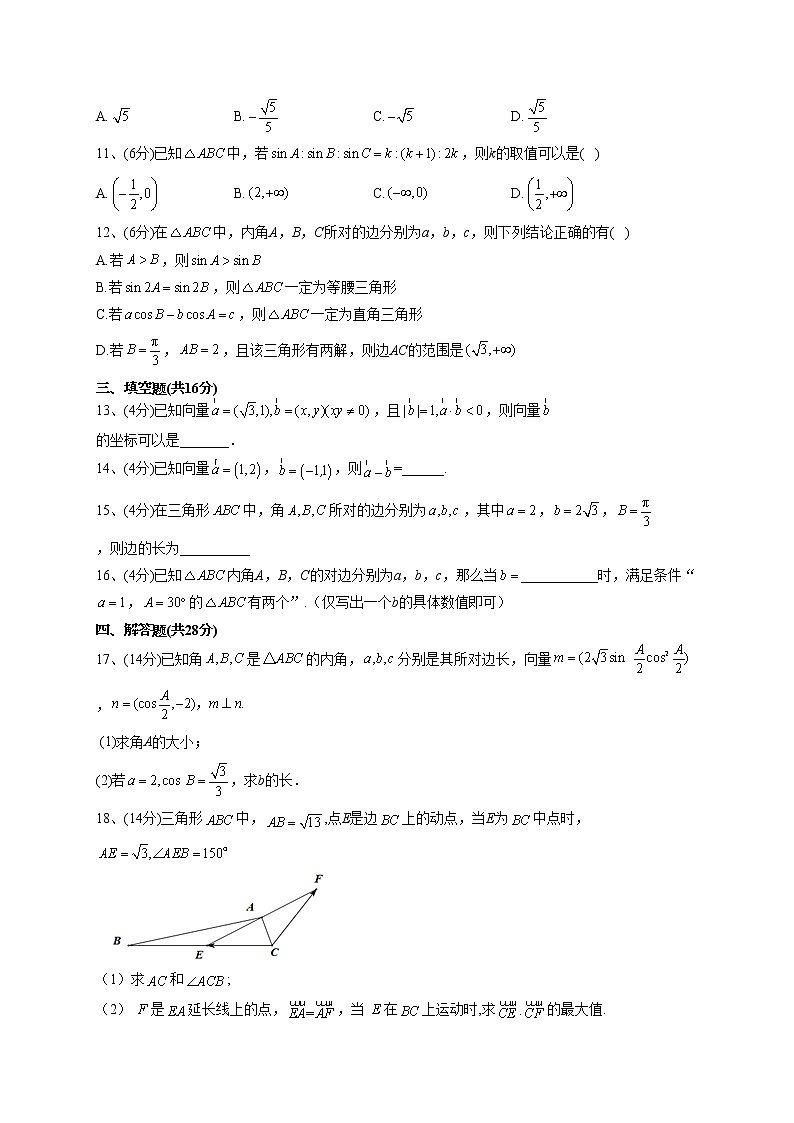 A. √5 B. −√5/5 C. −√5 D. √5/5
11、(6分)已知△ABC中，若sin A : sin B : sin C = k : (k+1) : 2k，则k的取值可以是( )
A. (−1/2,0) B. (2,+∞) C. (−∞,0) D. (1/2,+∞)
12、(6分)在△ABC中，内角A，B，C所对的边分别为a，b，c，则下列结论正确的有( )
A.若A > B，则sin A > sin B
B.若sin 2A = sin 2B，则△ABC一定为等腰三角形
C.若a cos B − b cos A = c，则△ABC一定为直角三角形
D.若B = π/3，AB = 2，且该三角形有两解，则边AC的范围是(√3,+∞)
三、填空题(共16分)
13、(4分)已知向量a = (√3,1),b = (x, y)(xy ≠ 0)，且| b |= 1,a · b < 0，则向量b
的坐标可以是_______．
14、(4分)已知向量a = (1,2)，b = (−1,1)，则a − b =______.
15、(4分)在三角形ABC中，角A,B,C所对的边分别为a,b,c，其中a = 2，b = 2√3，B = π/3
，则边的长为__________
16、(4分)已知△ABC内角A，B，C的对边分别为a，b，c，那么当b = ___________时，满足条件“
a = 1，A = 30°的△ABC有两个”.（仅写出一个b的具体数值即可）
四、解答题(共28分)
17、(14分)已知角A,B,C是△ABC的内角，a,b,c分别是其所对边长，向量m = (2√3 sin A/2 cos² A/2)
，n = (cos A/2,−2)，m ⊥ n.
(1)求角A的大小；
(2)若a = 2,cos B = √3/3，求b的长．
18、(14分)三角形ABC中，AB = √13,点E是边BC上的动点，当E为BC中点时，
AE = √3,∠AEB = 150°
F
A
B
E
C
（1）求AC和∠ACB；
（2） F是EA延长线上的点，EA=AF，当 E在BC上运动时,求CE·CF的最大值.